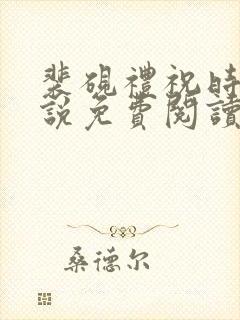 裴硯禮祝時
說免費閱讀
桑德尔